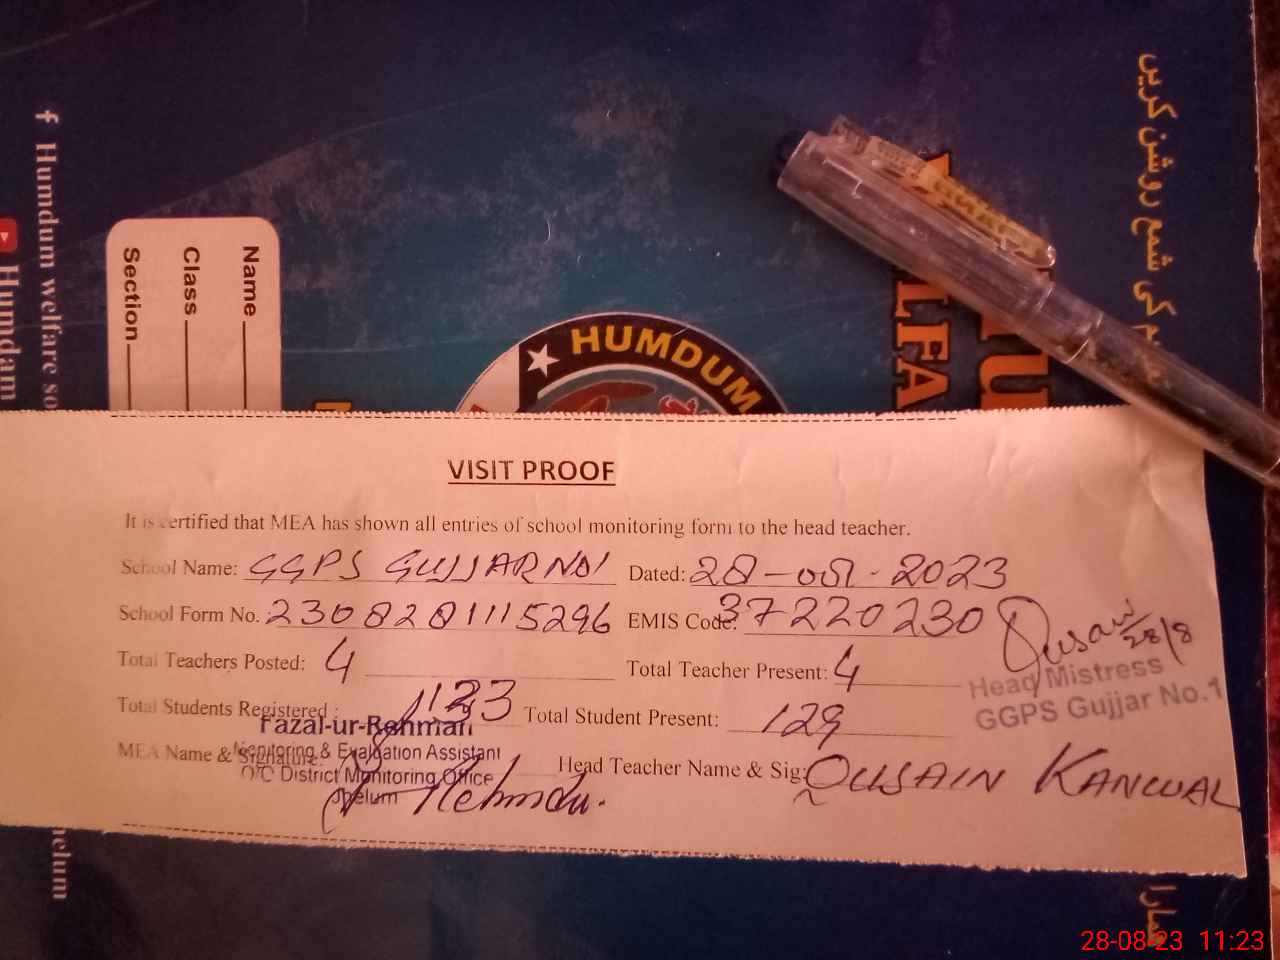 سارا
شمع روشن کریں
f Humdum welfare so
Humdam
Name
Class
Section
HUMDUM
LFA
VISIT PROOF
It is certified that MEA has shown all entries of school monitoring form to the head teacher.
School Name: GGPS GUJJAR NO1 Dated: 28-08-2023
School Form No. 2308281115296 EMIS Code: 37220230
Total Teachers Posted: 4 Total Teacher Present: 4
Total Students Registered : 133 Total Student Present: 129
MEA Name & Signature: Head Teacher Name & Sig: QUSAIN KANWAL
Fazal-ur-Rehman
Monitoring & Evaluation Assistant
O/C District Monitoring Office
Jhelum
Rehman
Qusain
28/8
Head Mistress
GGPS Gujjar No.1
helum
28-08-23 11:23